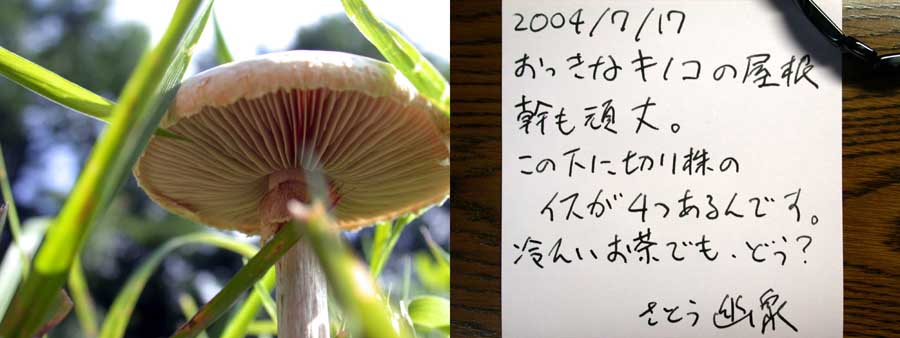 2004/7/17
おっきなキノコの屋根
幹も頑丈。
この下に切り株の
イスが4つあるんです。
冷んいお茶でも、どう?
さとう